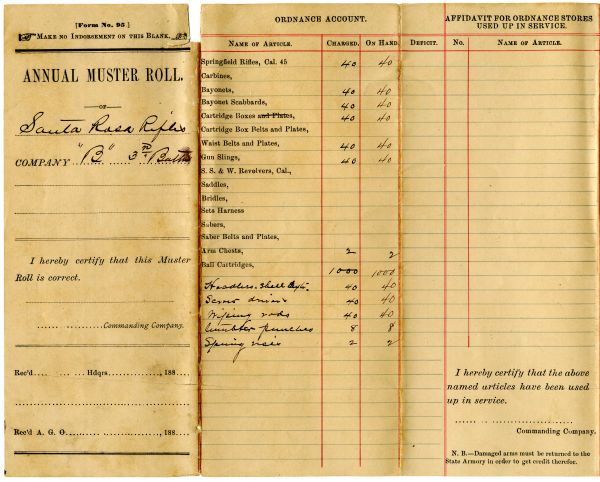 [Form No. 95]
Make no Indorsement on this Blank.
ANNUAL MUSTER ROLL.
—OF—
Santa Rosa Rifles
COMPANY "B" 3rd Batt
I hereby certify that this Muster
Roll is correct.
Commanding Company.
Rec'd Hdqrs. , 188
Rec'd A. G. O. , 188
ORDNANCE ACCOUNT.
Name of Article. Charged. On Hand. Deficit.
Springfield Rifles, Cal. 45 40 40
Carbines,
Bayonets, 40 40
Bayonet Scabbards, 40 40
Cartridge Boxes and Plates, 40 40
Cartridge Box Belts and Plates,
Waist Belts and Plates, 40 40
Gun Slings, 40 40
S. S. & W. Revolvers, Cal.,
Saddles,
Bridles,
Sets Harness
Sabers,
Saber Belts and Plates,
Arm Chests, 2 2
Ball Cartridges, 1000 1000
Headless Shell 40 40
Screw drivers 40 40
Wiping rods 40 40
Tumbler punches 8 8
Spring vises 2 2
AFFIDAVIT FOR ORDNANCE STORES
USED UP IN SERVICE.
No. Name of Article.
I hereby certify that the above
named articles have been used
up in service.
Commanding Company.
N. B.—Damaged arms must be returned to the
State Armory in order to get credit therefor.